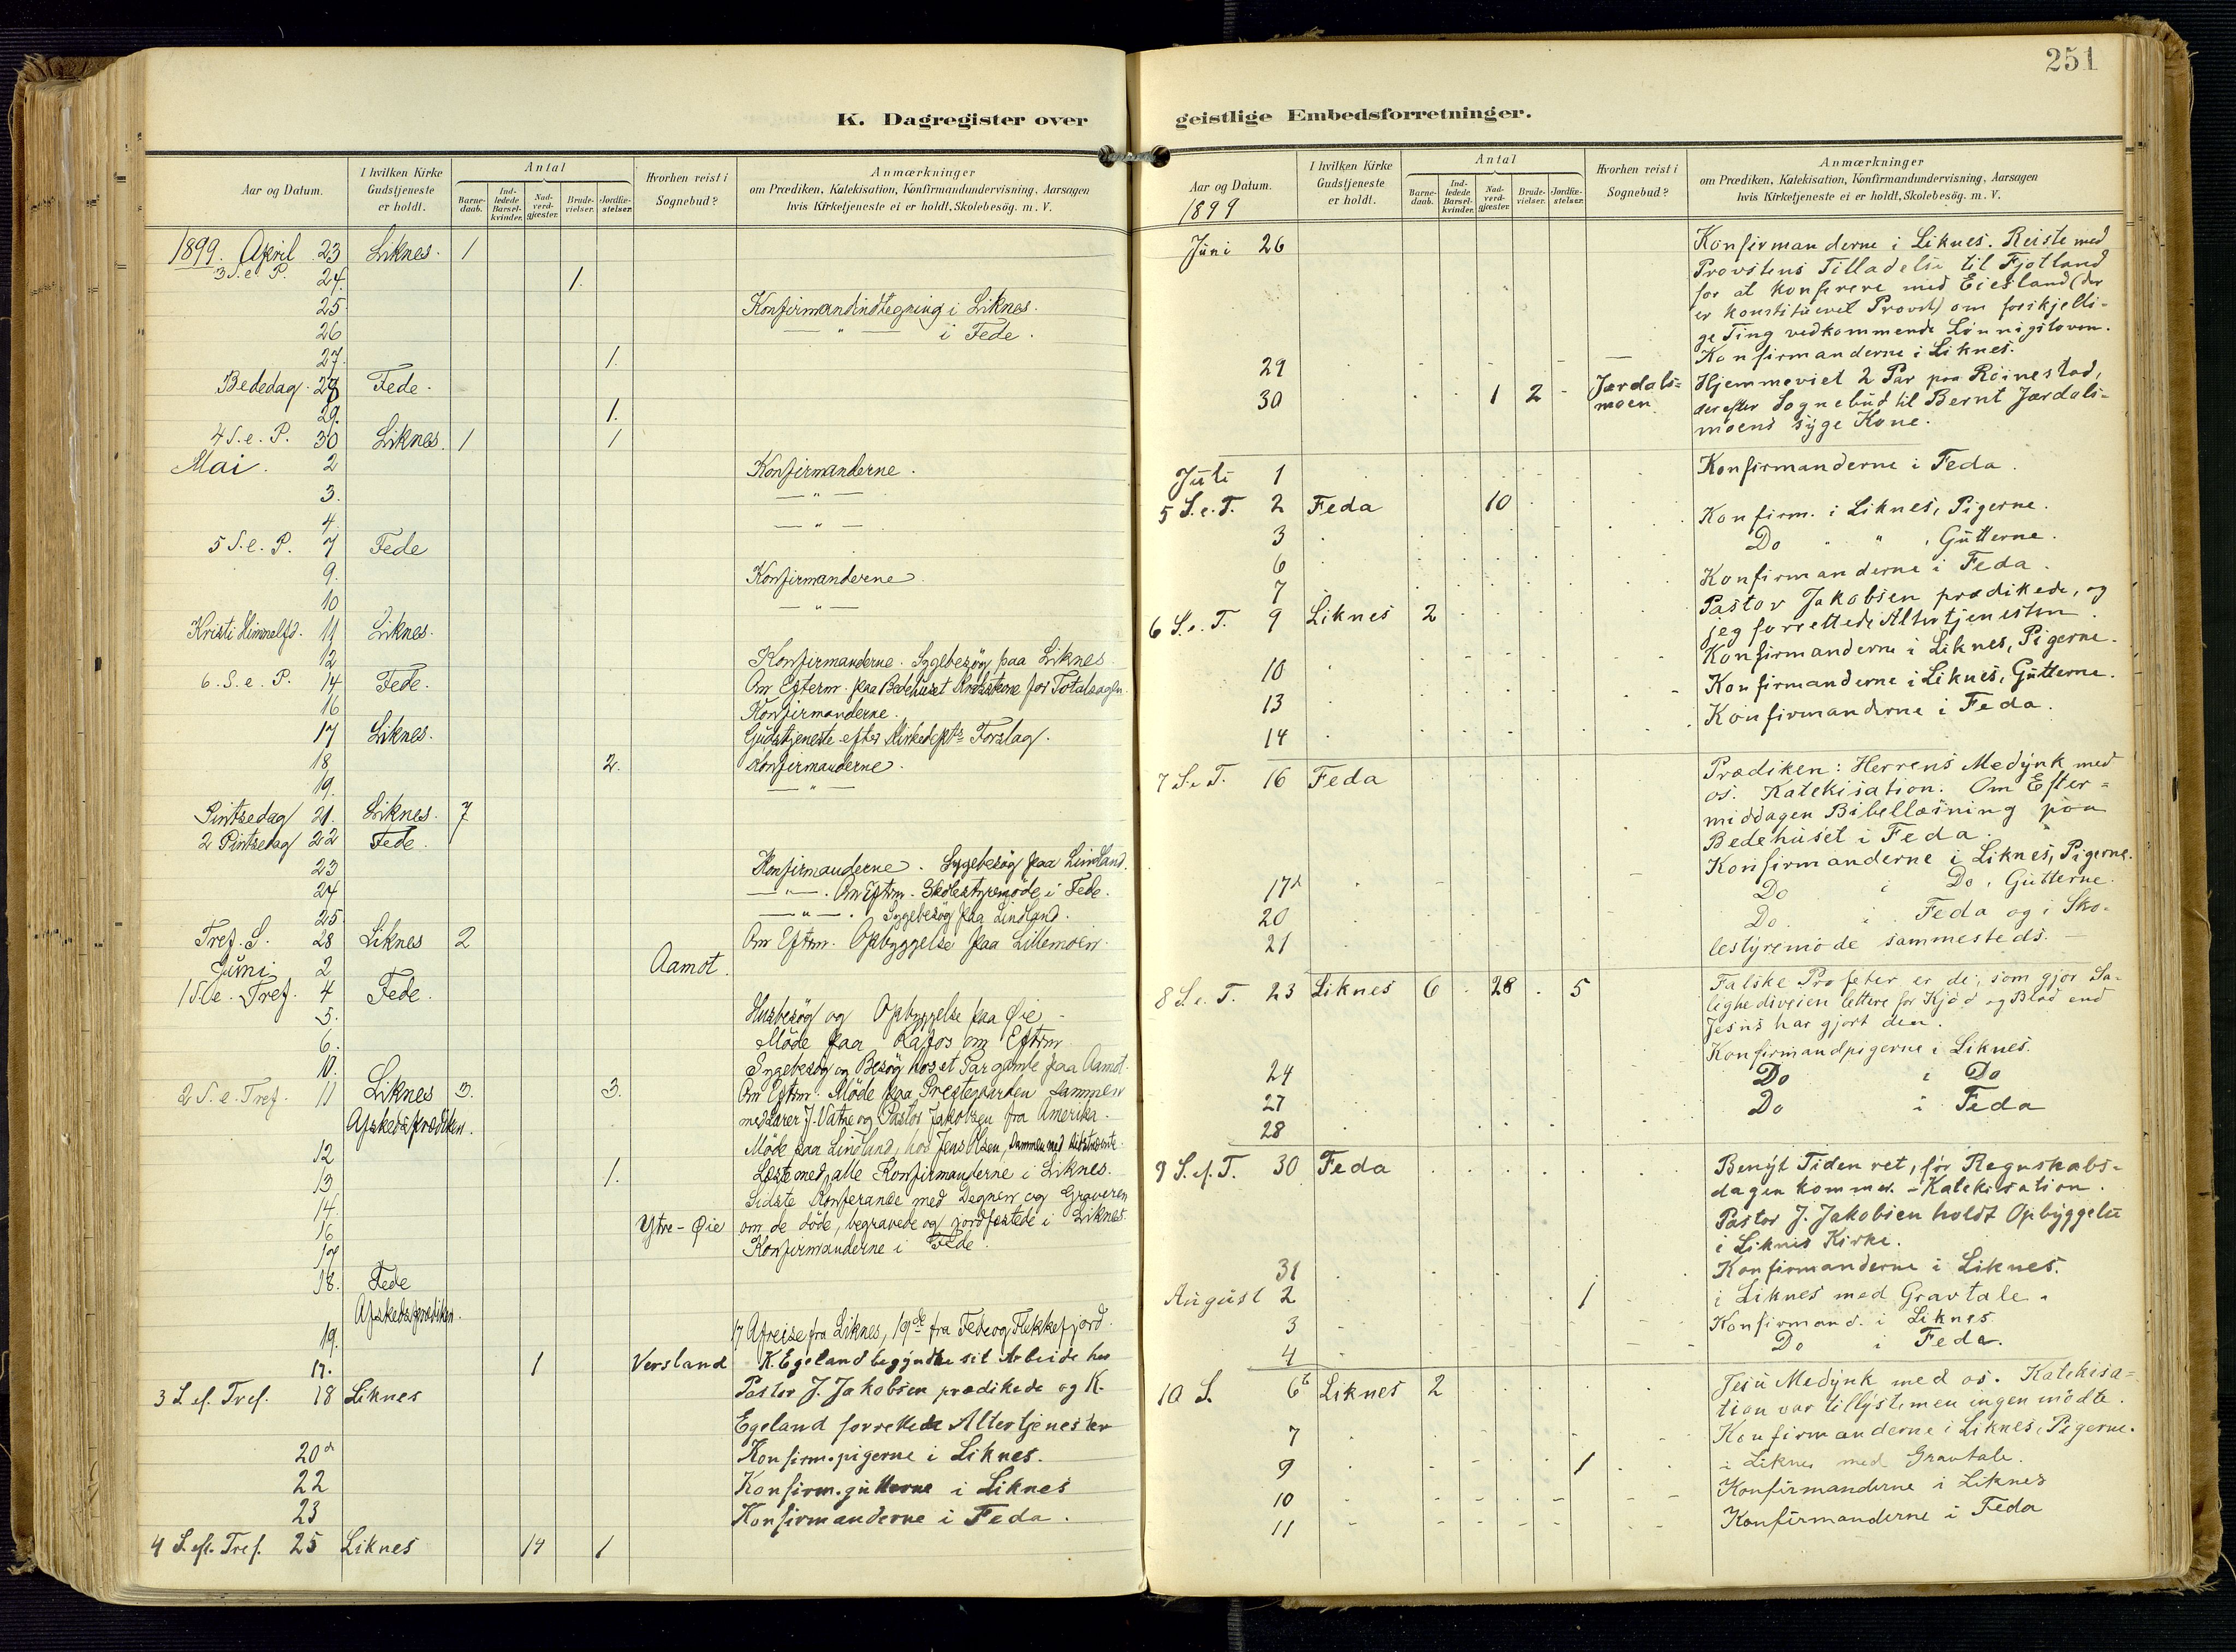 251
K. Dagregister over geistlige Embedsforretninger.
Aar og Datum.
I hvilken Kirke Gudstjeneste er holdt.
Antal
Barnedaab.
Indledede Barselkvinder.
Nadverdgjæster.
Brudevielser.
Jordfæstelser.
Hvorhen reist i Sognebud?
Anmærkninger
om Prædiken, Katekisation, Konfirmandundervisning, Aarsagen
hvis Kirketjeneste ei er holdt, Skolebesøg. m. V.
1899. April 23 Liknes. 1
3 S. e. P. 24. 1.
25. Konfirmandindtegning i Liknes.
26 — " — i Fede.
27. 1.
Bededag. 28 Fede.
29. 1.
4 S. e. P. 30 Liknes. 1 1
Mai. 2 Konfirmanderne.
3. — " —
4. — " —
5 S. e. P. 7 Fede
9. Konfirmanderne.
10 — " —
Kristi Himmelfd. 11 Liknes.
12 Konfirmanderne. Sygebesøg paa Liknes
6. S. e. P. 14 Fede. Om Efterm. paa Bedehuset for Totalsagen
16 Konfirmanderne.
17 Liknes. Gudstjeneste efter Kirkedepts Forslag.
18 2. Konfirmanderne.
19. — " —
Pintsedag 21. Liknes. 7
2 Pintsedag 22 Fede.
23 Konfirmanderne. Sygebesøg paa Lindland.
24 — " —. Om Eftrm. Skolestyremøde i Fede.
25 — " —. Sygebesøg paa Lindland.
Tref. S. 28 Liknes 2 Om Eftrm. Opbyggelse paa Lillemoen.
Juni 2 Aamot.
1 S. e. Tref. 4 Fede.
5. Husbesøg og Opbyggelse paa Øie -
6. Møde paa Rafos om Eftrm.
10. Sygebesøg og Besøg hos et Par gamle paa Aamot.
2 S. e. Tref. 11 Liknes 3. 3. Om Eftrm. Møde paa Prestegaarden sammen
Afskedsprædiken. med Lærer J. Vatne og Pastor Jakobsen fra Amerika.
12 Møde paa Lindland, hos Jens Olsen, sammen med
13 1. Læste med alle Konfirmanderne i Liknes.
14. Sidste Konferanse med Degnen og Graveren
16 Ytre - Øie om de døde, begravede og jordfæstede i Liknes.
17 Konfirmanderne i Fede.
18. Fede
Afskedsprædiken.
19. 17 Afreise fra Liknes, 19de fra Fede og Flekkefjord.
17. 1 Versland K. Egeland begyndte sit Arbeide her
3 S. ef. Tref. 18 Liknes Pastor J. Jakobsen prædikede og K.
Egeland forrettede Altertjenesten
20de Konfirm.pigerne i Liknes.
22 Konfirm.gutterne i Liknes
23 Konfirmanderne i Feda.
4 S. ef. Tref. 25 Liknes 14 1
Aar og Datum.
1899
I hvilken Kirke Gudstjeneste er holdt.
Antal
Barnedaab.
Indledede Barselkvinder.
Nadverdgjæster.
Brudevielser.
Jordfæstelser.
Hvorhen reist i Sognebud?
Anmærkninger
om Prædiken, Katekisation, Konfirmandundervisning, Aarsagen
hvis Kirketjeneste ei er holdt, Skolebesøg. m. V.
Juni 26 Konfirmanderne i Liknes. Reiste med
Provstens Tilladelse til Fjotland
for at konferere med Eiesland (der
er konstitueret Provst) om forskjelli-
ge Ting vedkommende Lønningsloven.
29 Konfirmanderne i Liknes.
30 1 2 Jærdals- Hjemmeviet 2 Par paa Röinestad,
moen derefter Sognebud til Bernt Jærdals-
moens syge Kone.
Juli 1 Konfirmanderne i Feda.
5 S. e. T. 2 Feda 10
3 Konfirm. i Liknes, Pigerne.
6 Do " " , Gutterne.
7 Konfirmanderne i Feda.
6 S. e. T. 9 Liknes 2 Pastor Jakobsen prædikede, og
jeg forrettede Altertjenesten
10 Konfirmanderne i Liknes, Pigerne.
13 Konfirmanderne i Liknes, Gutterne.
14 Konfirmanderne i Feda.
7 S. e. T. 16 Feda Prædiken: Herrens Medynk med
os. Katekisation. Om Efter-
middagen Bibellæsning paa
Bedehuset i Feda.
17de Konfirmanderne i Liknes, Pigerne.
20 Do i Do, Gutterne.
21 Do. i Feda og i Sko-
lestyremøde sammesteds. —
8 S. e. T. 23 Liknes 6 28 5 Falske Profeter er de, som gjør Sa-
lighedsveien lettere for Kjød og Blod end
Jesus har gjort den.
24 Konfirmandpigerne i Liknes.
27 Do i Do
28 Do i Feda
9 S. ef. T. 30 Feda Benyt Tiden ret, før Regnskabs-
dagen kommer. - Katekisation.
Pastor J. Jakobsen holdt Opbyggelse
i Liknes Kirke.
31 Konfirmanderne i Liknes.
August 2 1 i Liknes med Gravtale.
3 Konfirmand. i Liknes
4 Do i Feda.
10 S. 6te Liknes 2 Jesu Medynk med os. Katekisa-
tion var tillyst men ingen mødte.
7 Konfirmanderne i Liknes, Pigerne.
9 1 i Liknes med Gravtale.
10 Konfirmanderne i Liknes
11 Konfirmanderne i Feda